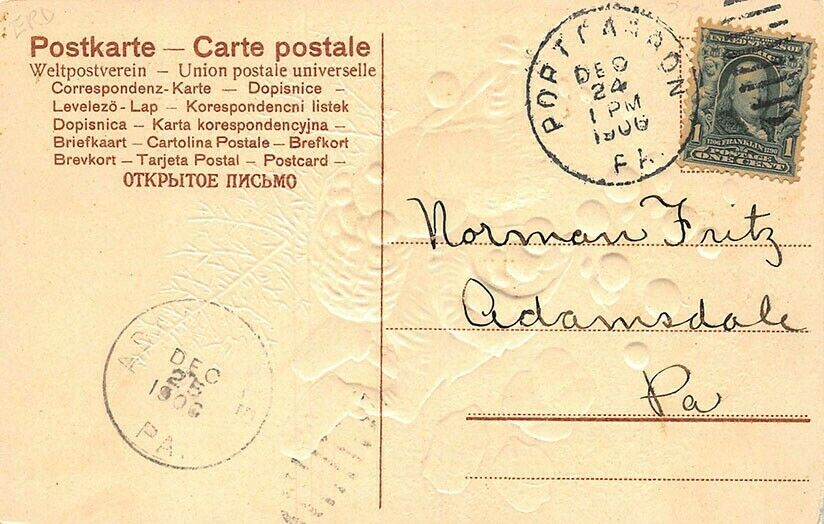 ERD
Postkarte — Carte postale
Weltpostverein — Union postale universelle
Correspondenz-Karte — Dopisnice —
Levelező-Lap — Korespondencni listek
Dopisnica — Karta korespondencyjna —
Briefkaart — Cartolina Postale — Brefkort
Brevkort — Tarjeta Postal — Postcard —
ОТКРЫТОЕ ПИСЬМО
PORT CARBON
DEC
24
1 PM
1906
PA.
1706 FRANKLIN 1790
1 POSTAGE 1
ONE CENT
Norman Fritz
Adamsdale
Pa
DEC
25
1906
PA.